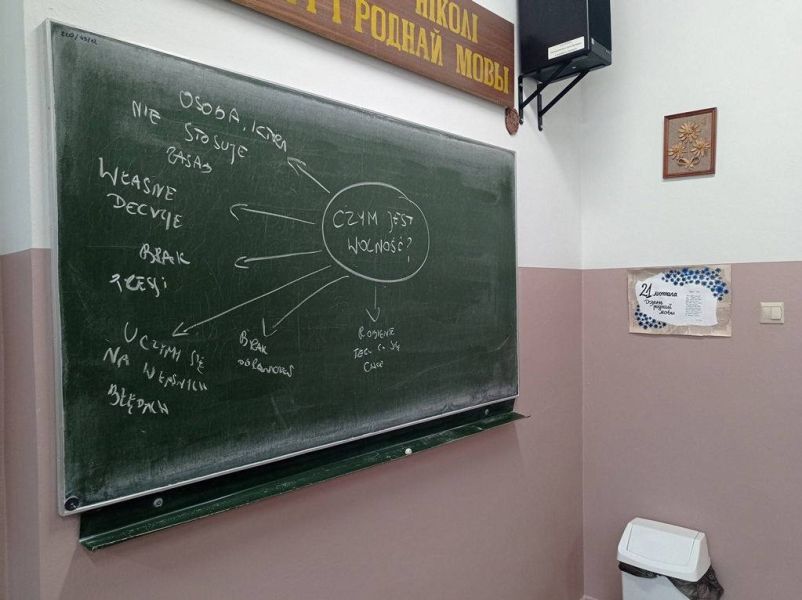 НІКОЛІ
І РОДНАЙ МОВЫ
CZYM JEST
WOLNOŚĆ?
OSOBA, KTÓRA
NIE STOSUJE
ZASAD
WŁASNE
DECYZJE
BRAK
UCZYMY SIĘ
NA WŁASNYCH
BŁĘDACH
BRAK
ROBIENIE
TEGO CO SIĘ
CHCE
21 лютага
Дзень
роднай
мовы